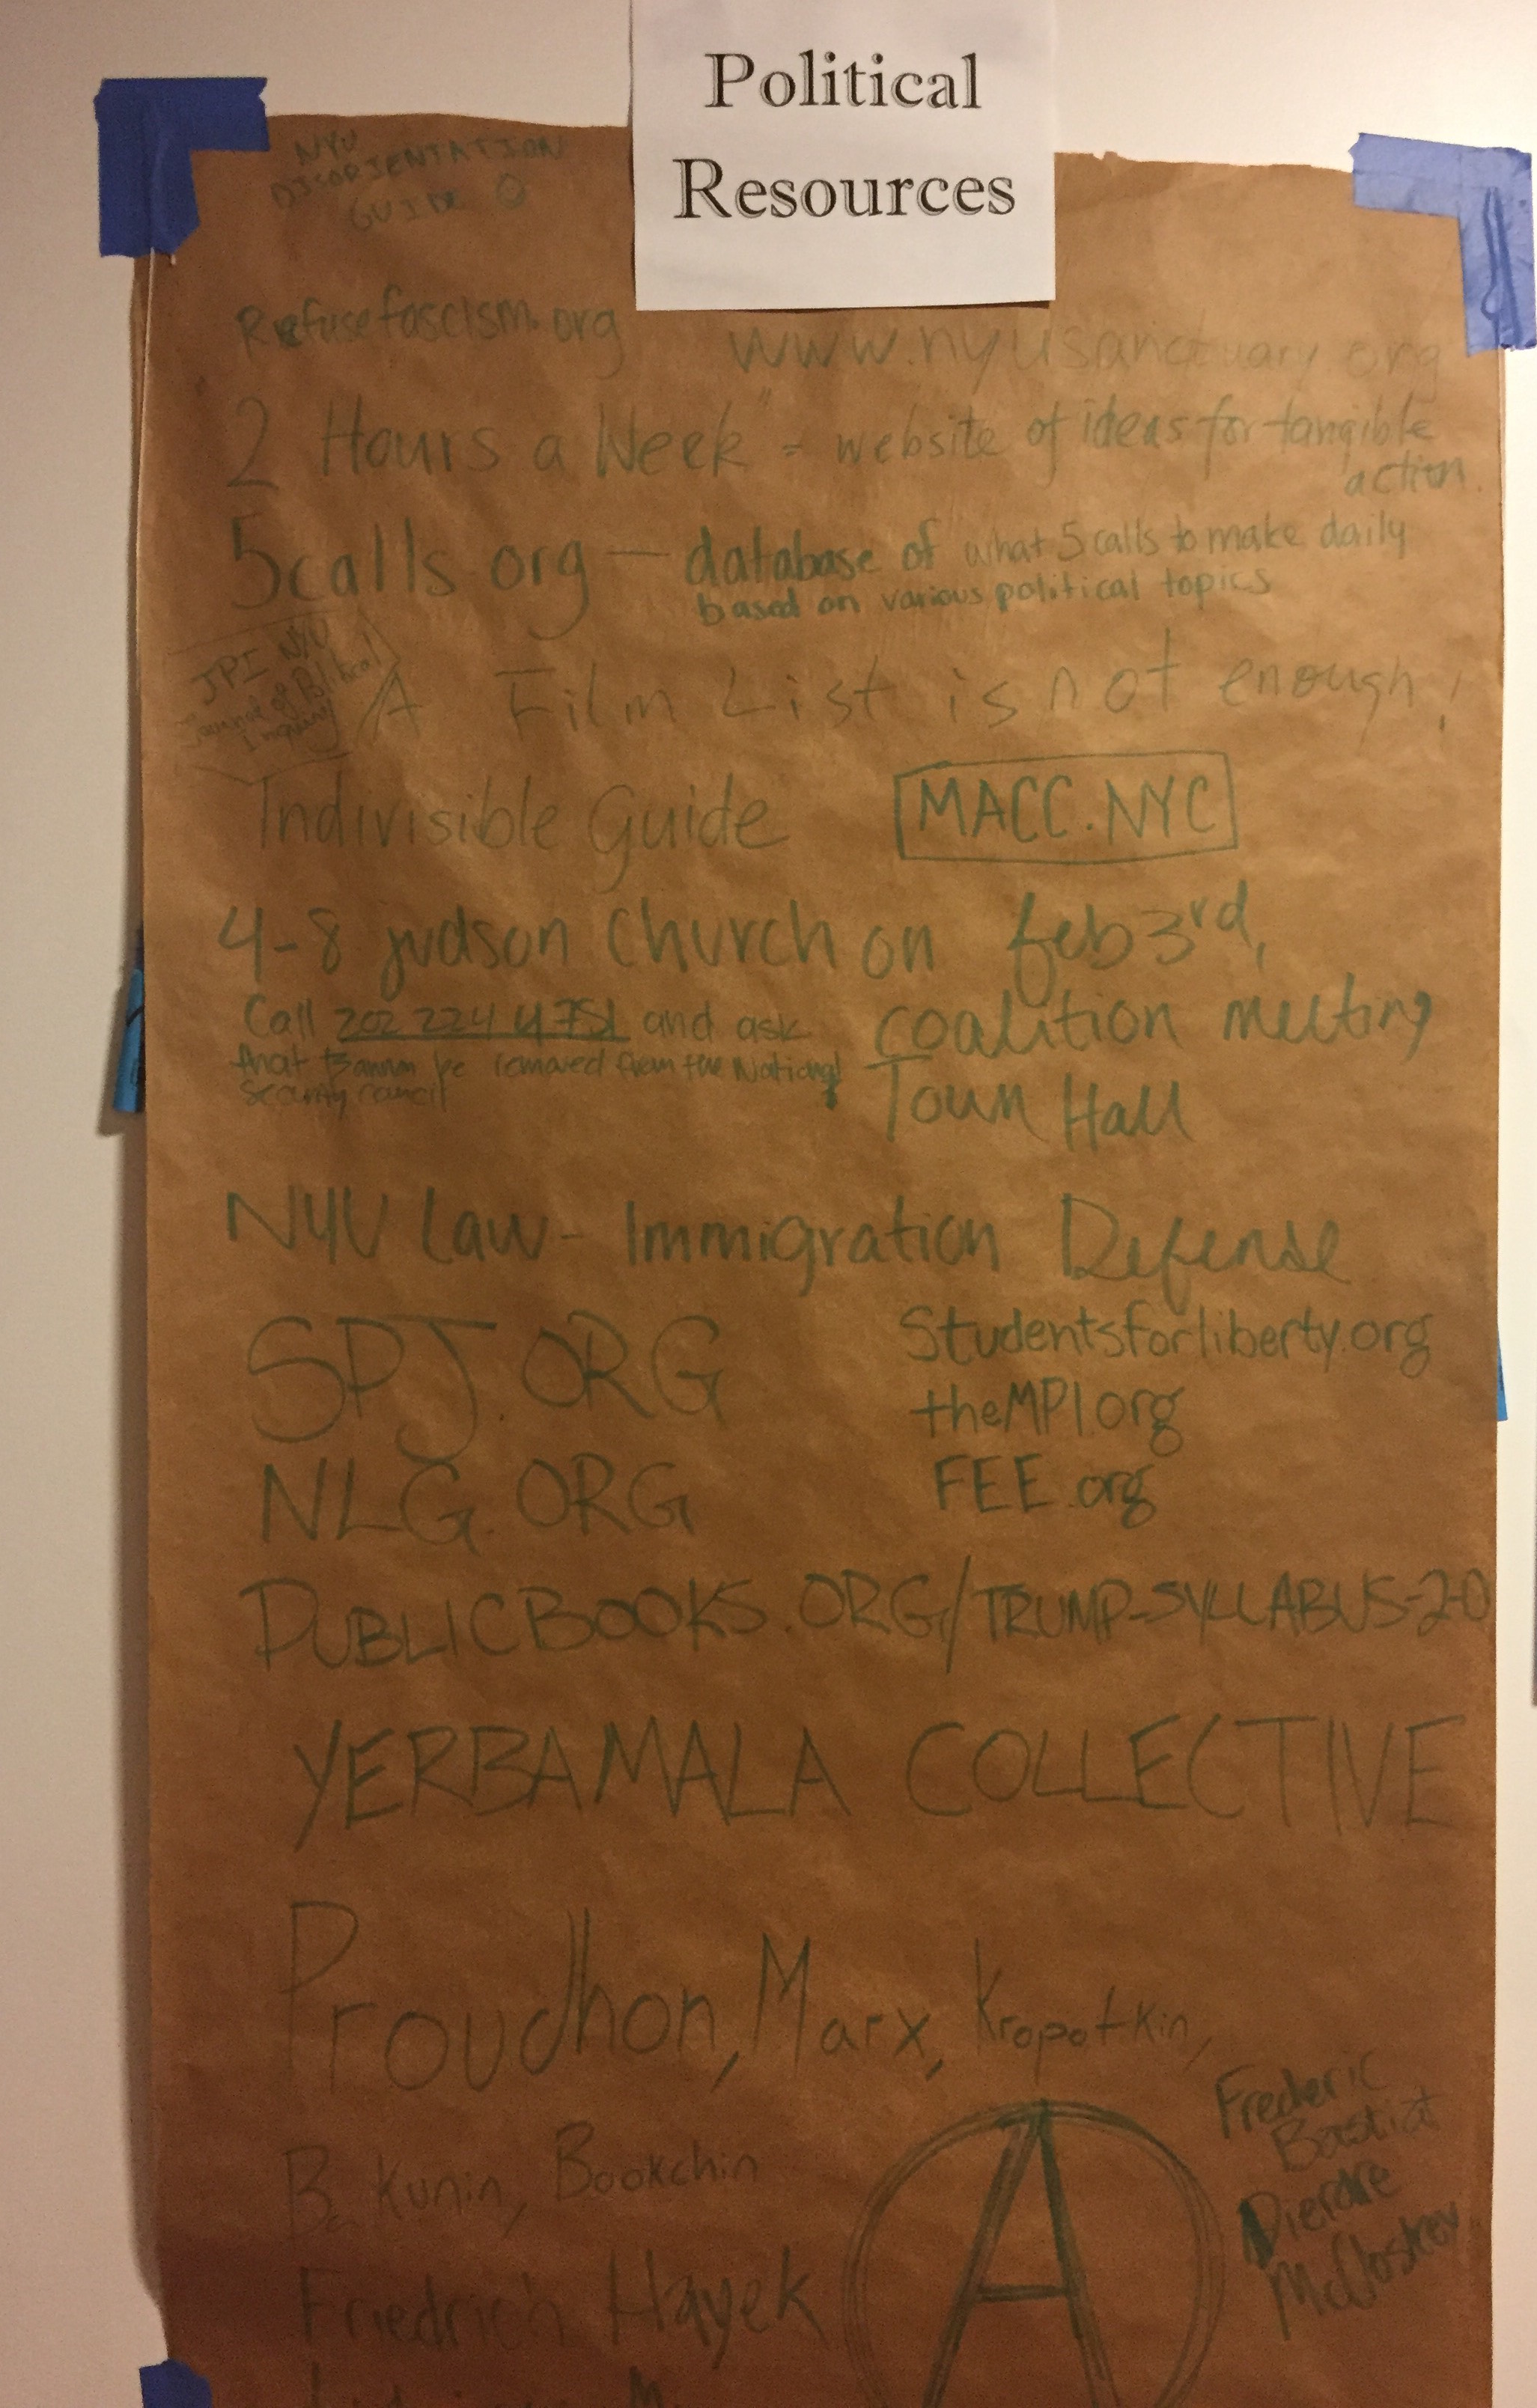 Political
Resources
NYU
DISORIENTATION
GUIDE
Refusefascism.org
www.nyusanctuary.org
2 Hours a Week" = website of ideas for tangible
action.
5calls.org — database of what 5 calls to make daily
based on various political topics
JPI NYU
Journal of Political
Inquiry
A Film List is not enough!
Indivisible Guide
MACC.NYC
4-8 judson Church on feb 3rd,
coalition meeting
Town Hall
Call 202 224 4751 and ask
that Bannon be removed from the National
Security council
NYU Law - Immigration Defense
SPJ.ORG
NLG.ORG
Studentsforliberty.org
theMPI.org
FEE.org
PUBLICBOOKS.ORG/TRUMP-SYLLABUS-2-0
YERBAMALA COLLECTIVE
Proudhon, Marx, Kropotkin,
Bakunin, Bookchin
Friedrich Hayek
A
Frederic
Bastiat
Dierdre
McCloskey